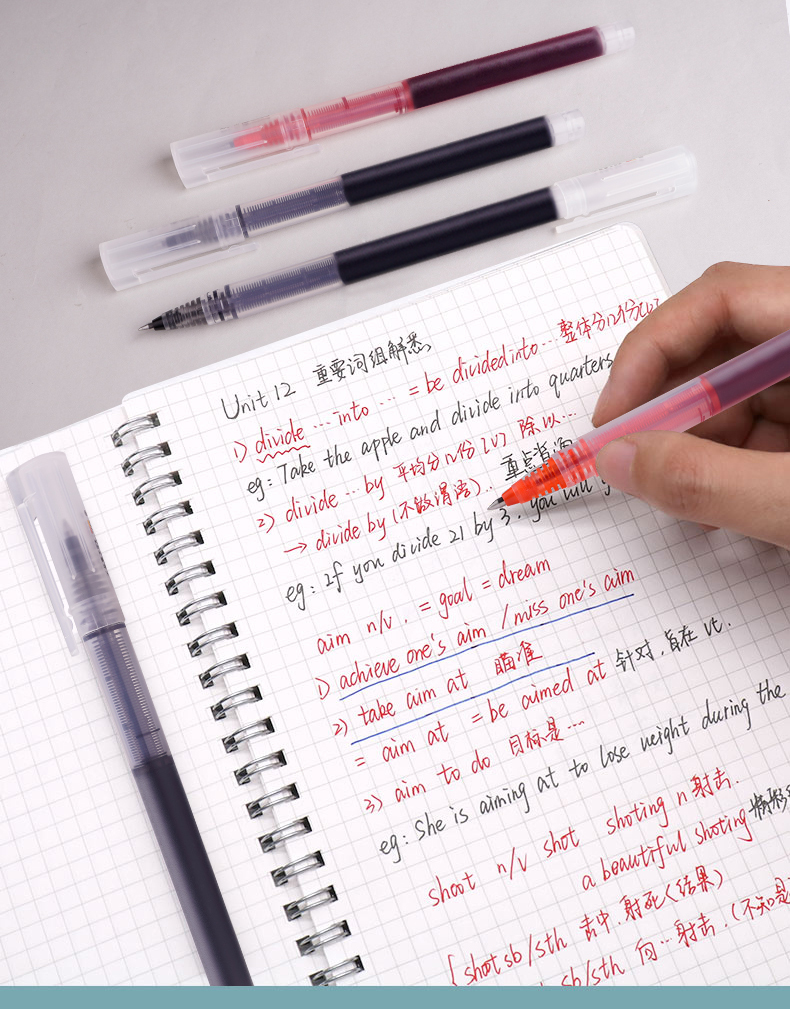 Unit 12 重要词组解悉
1) divide … into … = be divided into … 整体分几份
eg: Take the apple and divide into quarters
2) divide … by 平均分几份 除以…
→ divide by (不做谓语) … 重点
eg: If you divide 21 by 3. you will
aim n/v. = goal = dream
1) achieve one's aim / miss one's aim
2) take aim at 瞄准
= aim at = be aimed at 针对,旨在 vt.
3) aim to do 目标是…
eg: She is aiming at to lose weight during the
shoot n/v shot shoting n 射击.
a beautiful shoting 精彩
shot sb/sth 击中.射死(结果)
sb/sth 向…射击.(不知是